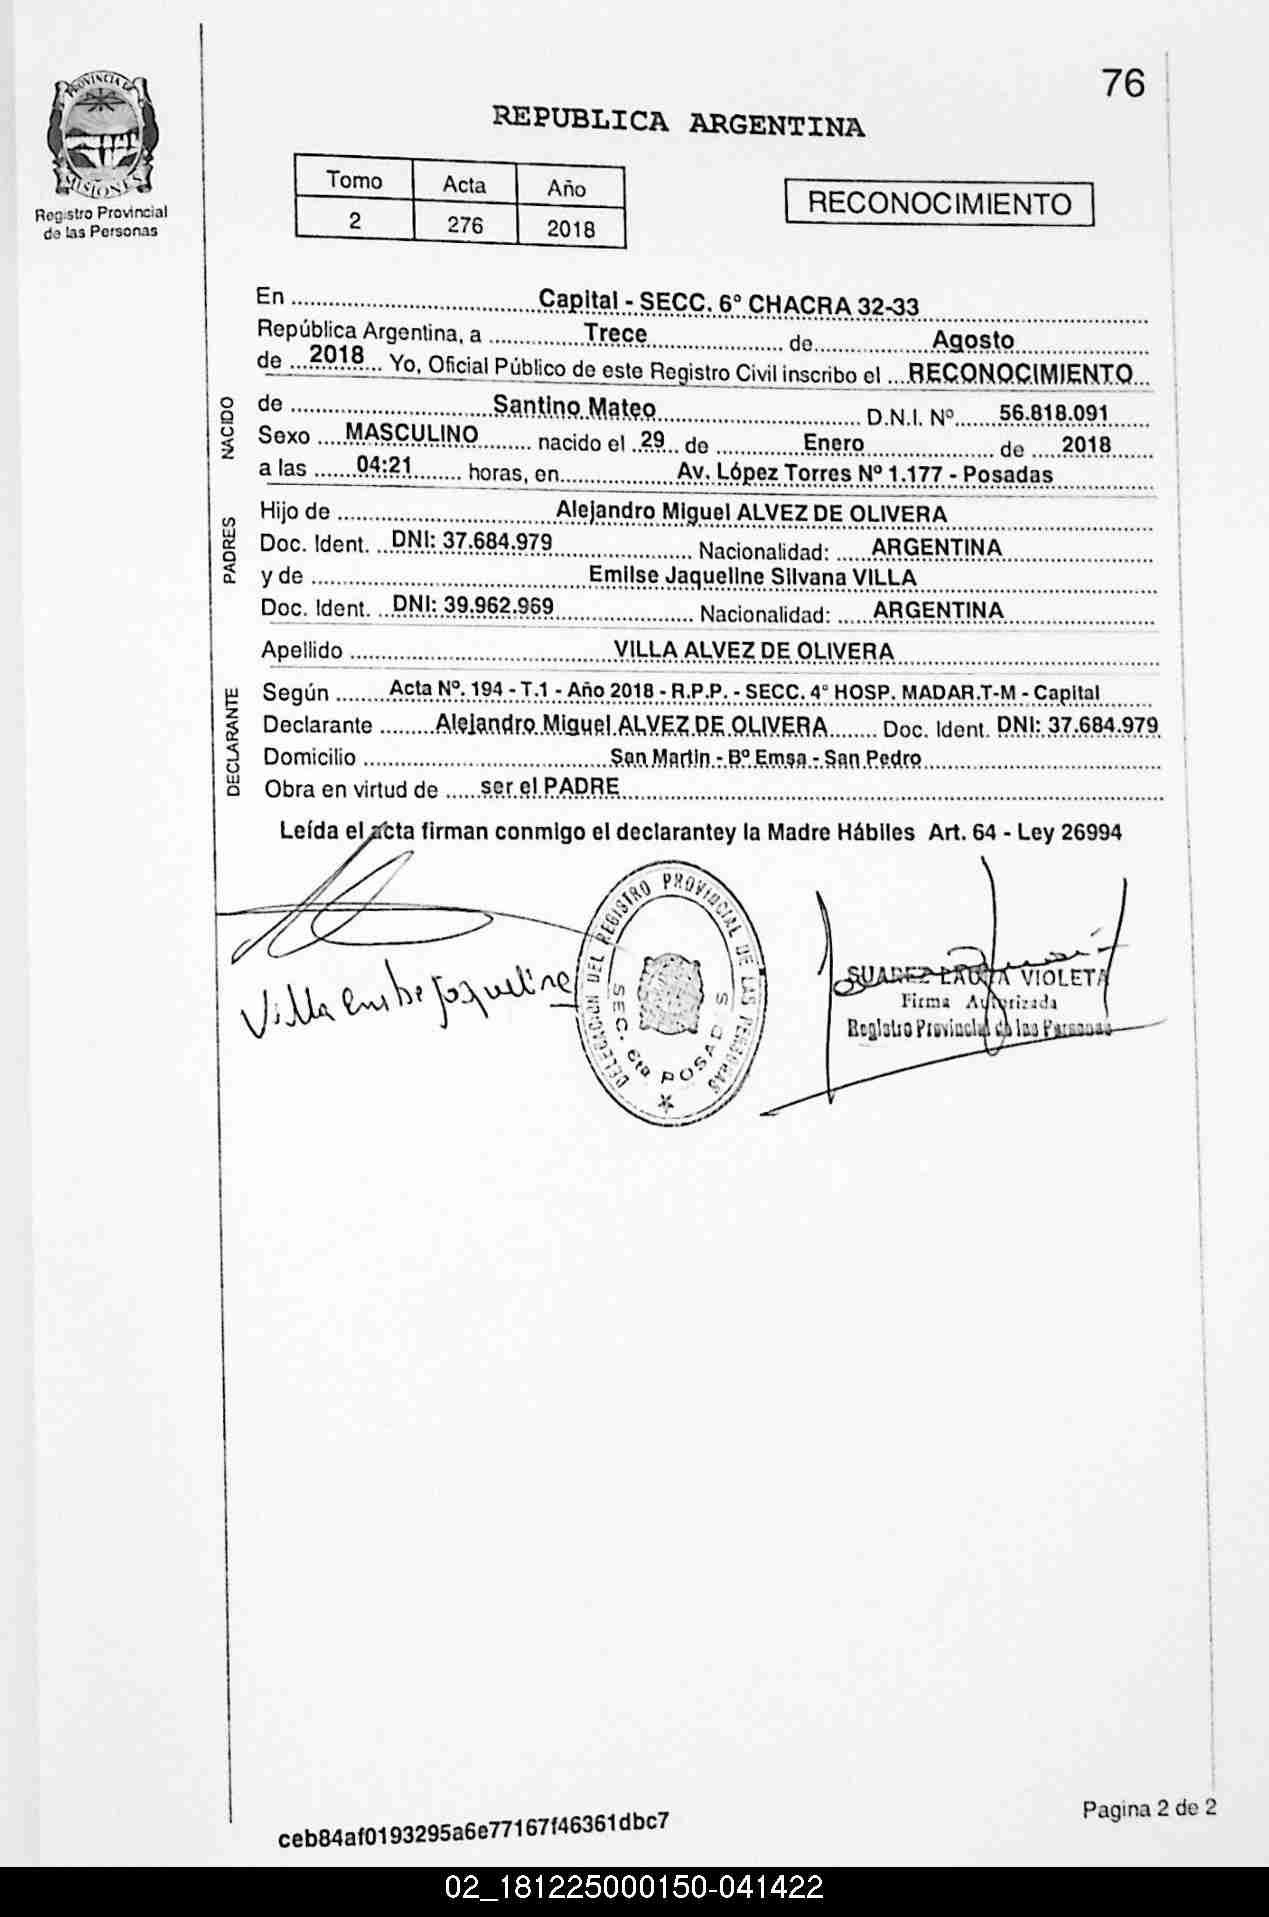 76
PROVINCIA DE
MISIONES
Registro Provincial
de las Personas
REPUBLICA ARGENTINA
Tomo Acta Año
2 276 2018
RECONOCIMIENTO
En Capital - SECC. 6º CHACRA 32-33
República Argentina, a Trece de Agosto
de 2018 Yo, Oficial Público de este Registro Civil inscribo el RECONOCIMIENTO
NACIDO
de Santino Mateo D.N.I. Nº 56.818.091
Sexo MASCULINO nacido el 29 de Enero de 2018
a las 04:21 horas, en Av. López Torres Nº 1.177 - Posadas
PADRES
Hijo de Alejandro Miguel ALVEZ DE OLIVERA
Doc. Ident. DNI: 37.684.979 Nacionalidad: ARGENTINA
y de Emilse Jaqueline Silvana VILLA
Doc. Ident. DNI: 39.962.969 Nacionalidad: ARGENTINA
Apellido VILLA ALVEZ DE OLIVERA
DECLARANTE
Según Acta Nº. 194 - T.1 - Año 2018 - R.P.P. - SECC. 4º HOSP. MADAR.T-M - Capital
Declarante Alejandro Miguel ALVEZ DE OLIVERA Doc. Ident. DNI: 37.684.979
Domicilio San Martin - Bº Emsa - San Pedro
Obra en virtud de ser el PADRE
Leída el acta firman conmigo el declarantey la Madre Hábiles Art. 64 - Ley 26994
Villa Jaqueline
DELEGACION DEL REGISTRO PROVINCIAL DE LAS PERSONAS
SEC. 6ta POSADAS
SUAREZ LAURA VIOLETA
Firma Autorizada
Registro Provincial de las Personas
ceb84af0193295a6e77167f46361dbc7
Pagina 2 de 2
02_181225000150-041422